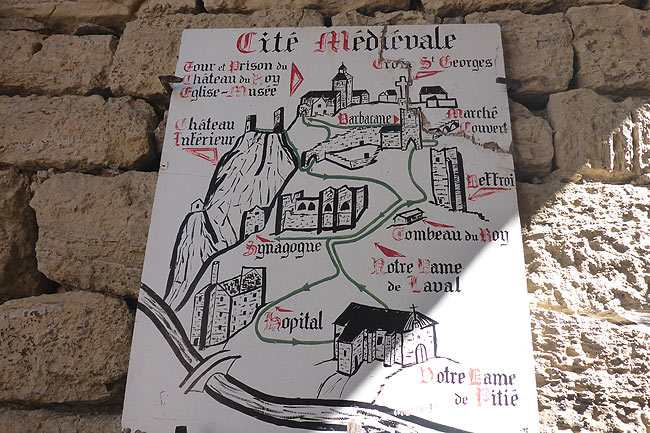 Cité Médiévale
Tour et Prison du
Château du Roy
Eglise-Musée
Croix St Georges
Château
Intérieur
Barbacane
Marché
Couvert
Beffroi
Tombeau du Roy
Synagogue
Notre Dame
de Laval
Hopital
Notre Dame
de Pitié